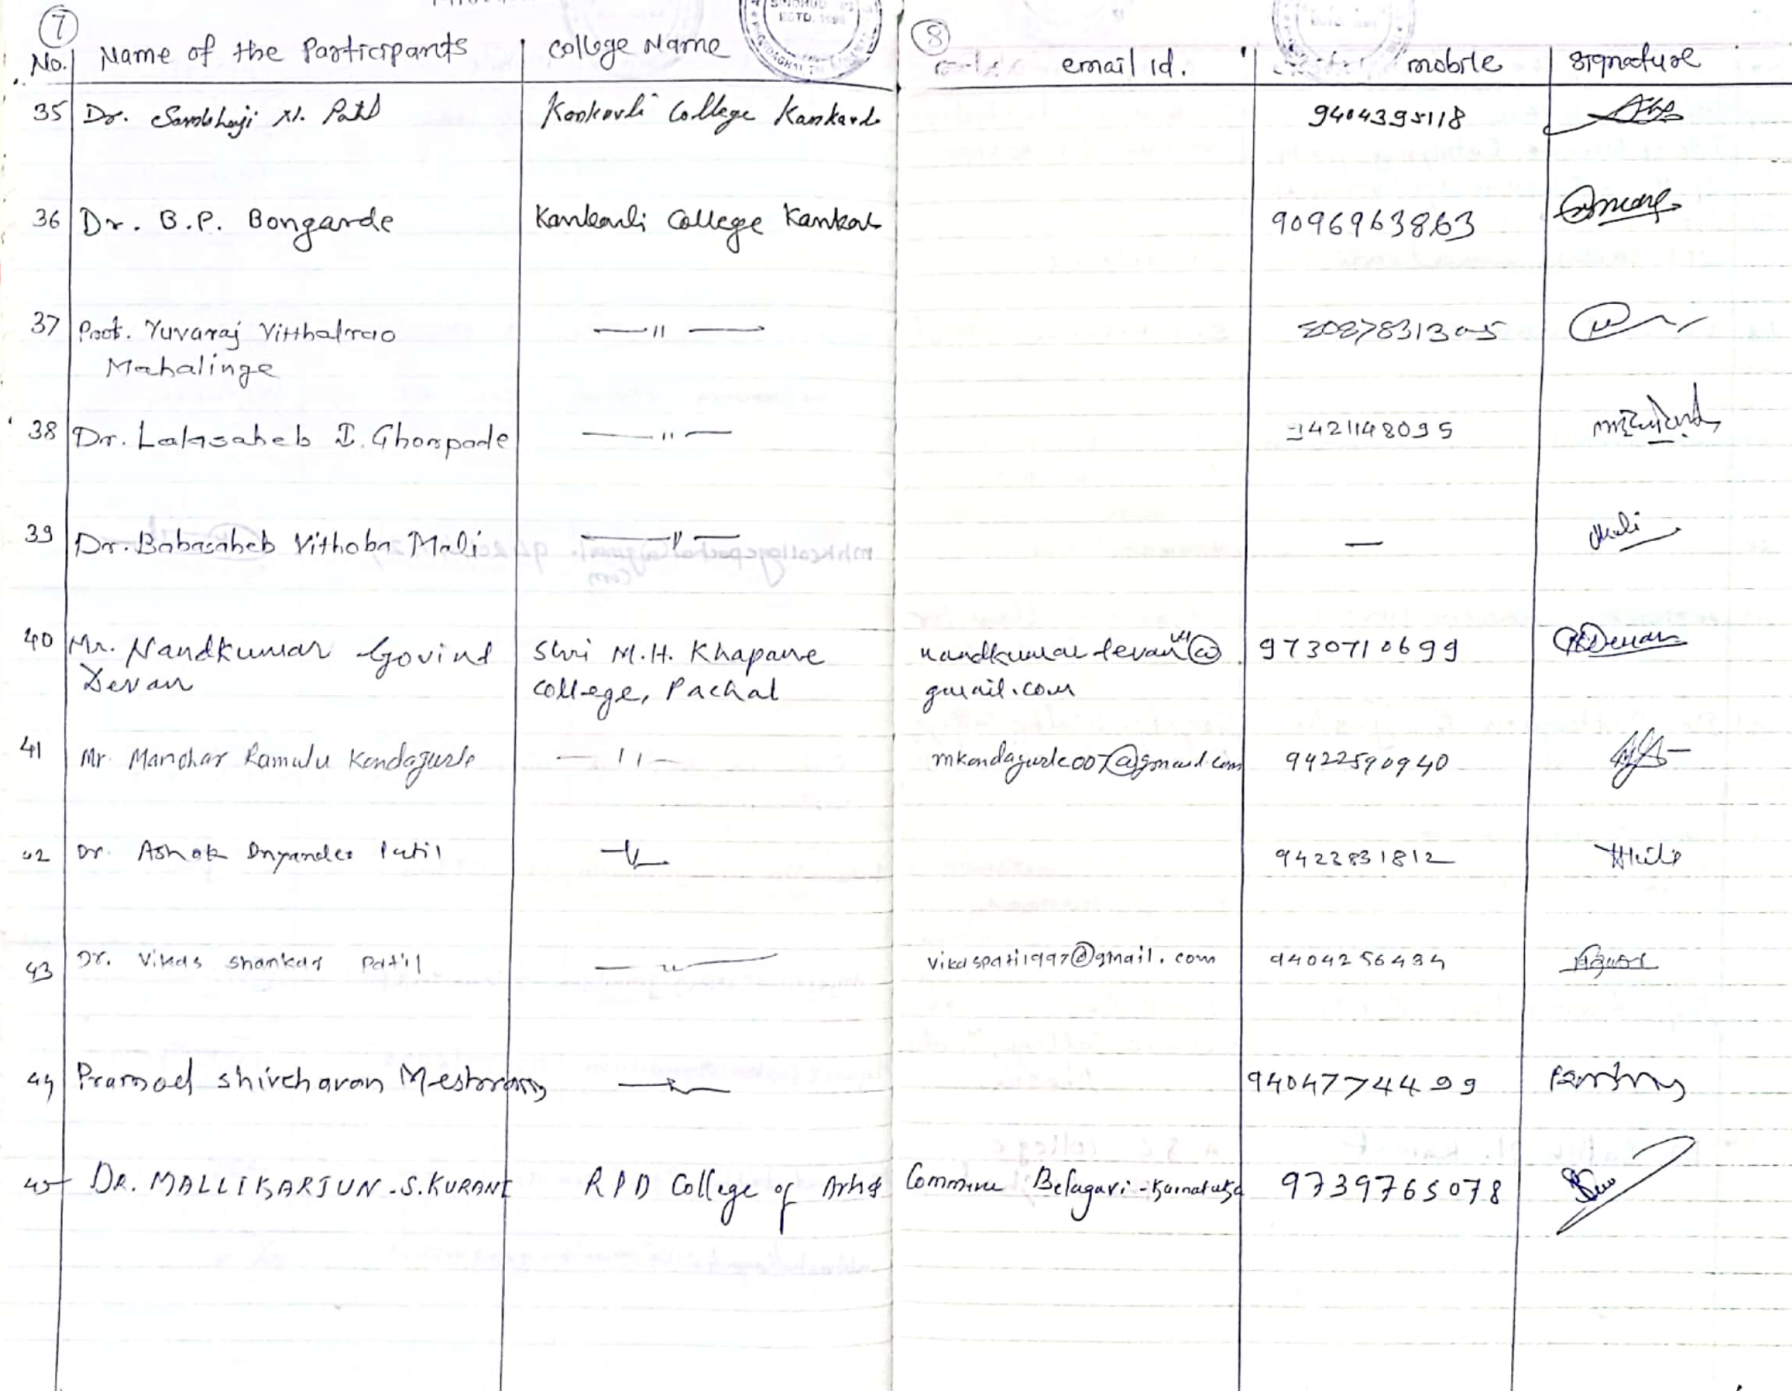 7
8
No. Name of the Participants college Name email id. mobile signature
35 Dr. Sambhaji N. Patil Kankavli College Kankavli 9404395118
36 Dr. B.P. Bongarde Kankavli College Kankavl 9096963863
37 Prof. Yuvaraj Vitthalrao —"— 8087831305
Mahalinge
38 Dr. Lalasaheb I. Ghorpade —"— 9421148095
39 Dr. Babasaheb Vithoba Mali —"— —
40 Mr. Nandkumar Govind Shri M.H. Khapane nandkumar devan@ 9730710699
Devan College, Pachal gmail.com
41 Mr. Manohar Ramulu Kondagurle —"— mkondagurle007@gmail.com 9422590940
42 Dr. Ashok Dnyandeo Patil —"— 9423831812
43 Dr. Vikas Shankar Patil —"— vikaspatil997@gmail.com 9404256434
44 Pramod Shivcharan Meshram —"— 9404774499
45 DR. MALLIKARJUN.S.KURANE RPD College of Arts Commerce Belagavi-Karnataka 9739765078